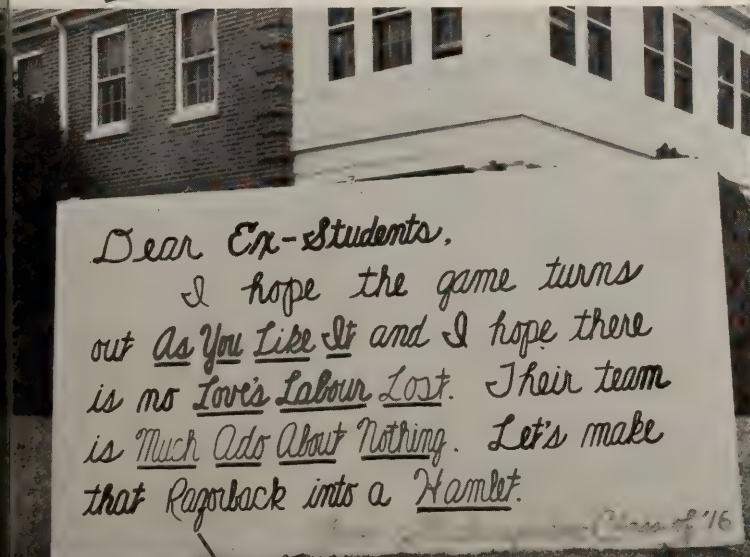 Dear Ex-Students,
I hope the game turns
out As You Like It and I hope there
is no Love's Labour Lost. Their team
is Much Ado About Nothing. Let's make
that Razorback into a Hamlet.
Class of '16